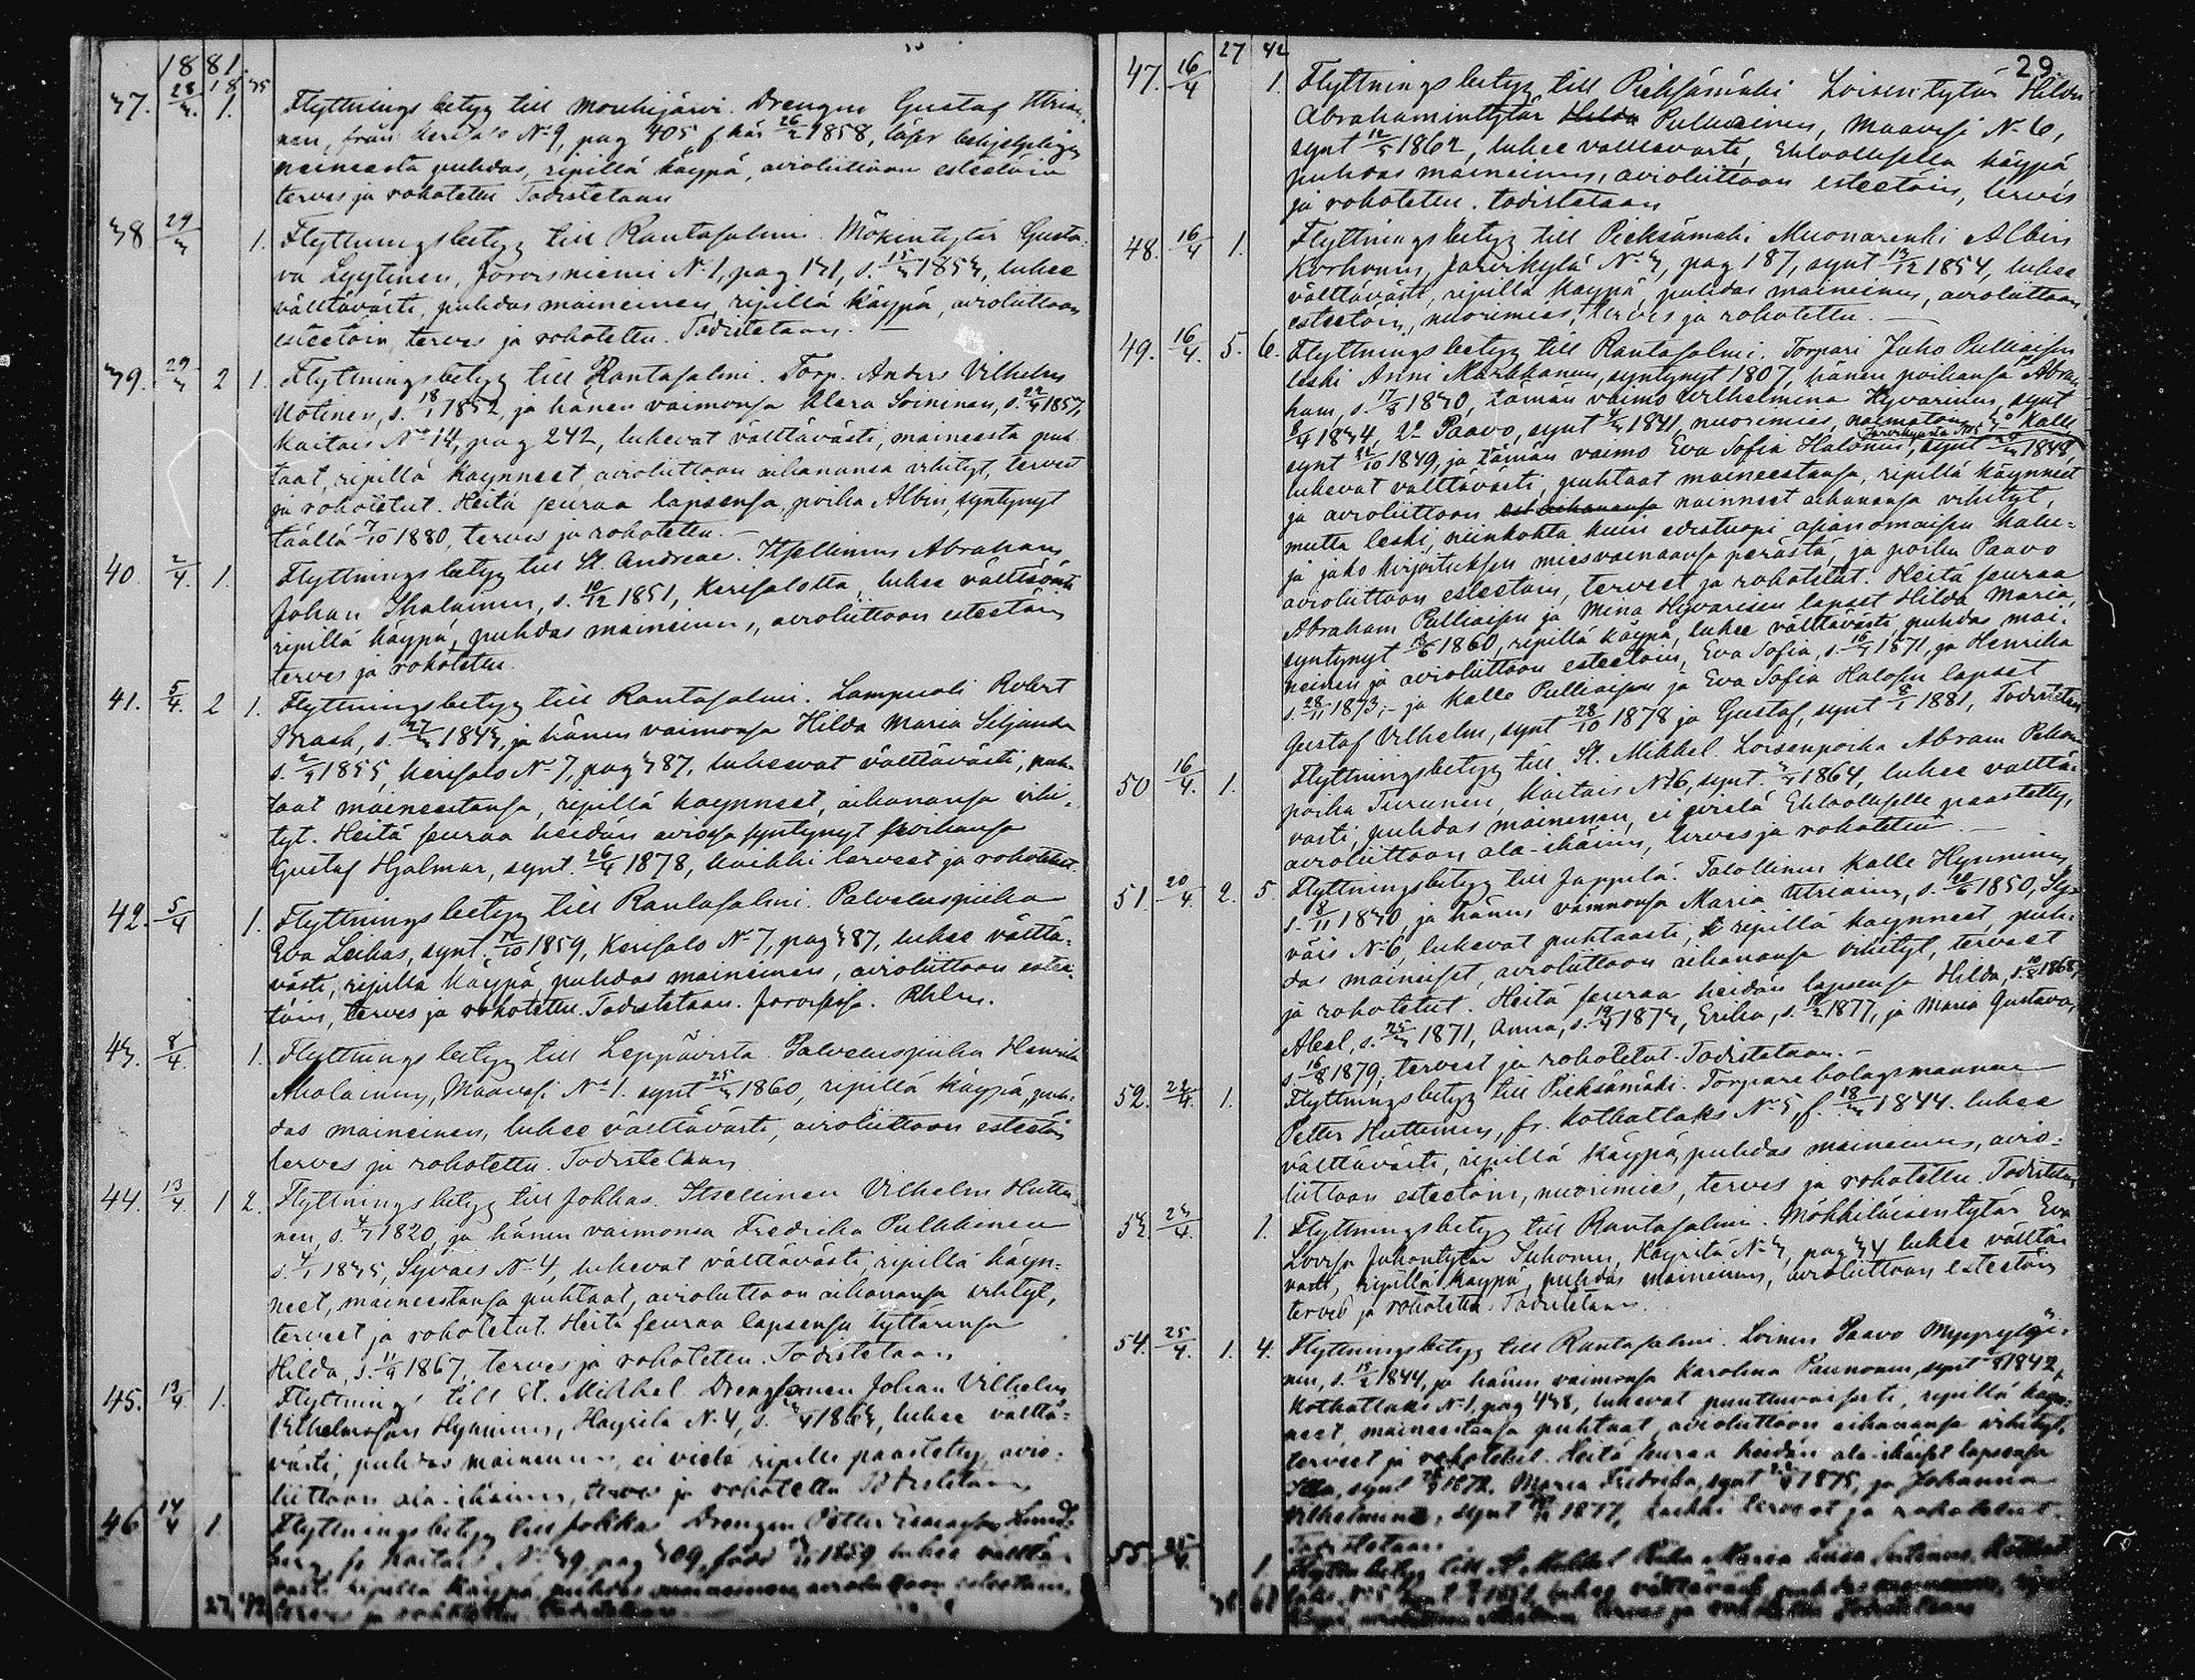 1881.
18 35
37. 28/3. 1. Flyttningsbetyg till Mouhijärvi. Drengen Gustaf Utriai-
nen, från Kerisalo No 9, pag 405, f. här 26/2 1858, läser
maineesta puhdas, ripillä käypä, avioliittoon esteetöin
terves ja rokotettu Todistetaan
38 29/3 1. Flyttningsbetyg till Rantasalmi. Mökintytär Gusta-
va Lyytinen, Joroisniemi No 1, pag 131, s. 15/3 1853, lukee
välttävästi, puhdas maineinen, ripillä käypä, avioliittoon
esteetöin, terves ja rokotettu. Todistetaan. —
39. 29/3 2 1. Flyttningsbetyg till Rantasalmi. Torp. Anders Vilhelm
Uotinen, s. 18/1 1852, ja hänen vaimonsa Klara Soininen, s. 22/4 1857,
Kaitais No 14, pag 242, lukevat välttävästi, maineesta puh-
taat, ripillä käynneet, avioliittoon aikanansa vihityt, terveet
ja rokotetut. Heitä seuraa lapsensa, poika Albin, syntynyt
täällä 7/10 1880, terves ja rokotettu. —
40. 2/4. 1. Flyttningsbetyg till St. Andreae. Itsellinen Abraham
Johan Ihalainen, s. 10/12 1851, Kerisalolta, lukee välttävästi
ripillä käypä, puhdas maineinen, avioliittoon esteetöin
terves ja rokotettu.
41. 5/4. 2 1. Flyttningsbetyg till Rantasalmi. Lampuoti Robert
Brask, s. 27/3 1843, ja hänen vaimonsa Hilda Maria Siljander
s. 2/4 1855, Kerisalo No 7, pag 387, lukeevat välttävästi, puh-
taat maineestansa, ripillä käynneet, aikanansa vihi-
tyt. Heitä seuraa heidän aviossa syntynyt poikansa
Gustaf Hjalmar, synt. 26/4 1878, kaikki terveet ja rokotetut.
42. 5/4 1. Flyttningsbetyg till Rantasalmi. Palveluspiika
Eva Leikas, synt. 12/10 1859, Kerisalo No 7, pag 387, lukee välttä-
västi, ripillä käypä, puhdas maineinen, avioliittoon estee-
töin, terves ja rokotettu. Todistetaan. Joroisissa.
43. 8/4. 1. Flyttningsbetyg till Leppävirta. Palveluspiika Henrika
Aholainen, Maavesi No 1. synt 25/3 1860, ripillä käypä, puh-
das maineinen, lukee välttävästi, avioliittoon esteetöin
terves ja rokotettu. Todistetaan
44. 13/4. 1 2. Flyttningsbetyg till Jokkas. Itsellinen Vilhelm Huttu-
nen, s. 4/7 1820, ja hänen vaimonsa Fredrika Pulkkinen
s. 4/1 1835, Syväis No 4, lukevat välttävästi, ripillä käyn-
neet, maineestansa puhtaat, avioliittoon aikanansa vihityt,
terveet ja rokotetut. Heitä seuraa lapsensa tyttärensä
Hilda, s. 11/9 1867, terves ja rokotettu. Todistetaan
45. 13/4. 1. Flyttnings till St. Mikkel Johan Vilhelm
Vilhelmsson Hynninen, Häyrilä No 4, s. 3/4 1863, lukee välttä-
västi, puhdas maineinen, ei vielä ripille päästetty, avio-
liittoon ala-ikäinen, terves ja rokotettu Todistetaan
46 14/4 1 Flyttningsbetyg till Jokkas Drengen Petter Lund-
berg, fr Kaitais No 39, pag 309, född 1859, lukee välttä-
västi ripillä käypä, puhdas maineinen avioliittoon esteetöin,
terves ja rokotettu. Todistetaan
27 42
29.
27 42
47. 16/4 1. Flyttningsbetyg till Pieksämäki Loisentytär Hilda
Abrahamintytär Hilda Pulliainen, Maavesi No 6,
synt 12/5 1862, lukee välttävästi, Ehtoolliselle käypä
puhdas maineinen, avioliittoon esteetöin, terves
ja rokotettu. todistetaan
48. 16/4 1. Flyttningsbetyg till Pieksämäki Muonarenki Albin
Korhonen, Järvikylä No 3, pag 187, synt 13/12 1854, lukee
välttävästi, ripillä käypä, puhdas maineinen, avioliittoon
esteetöin, nuorimies, terves ja rokotettu. —
49. 16/4. 5. 6. Flyttningsbetyg till Rantasalmi. Torpari Juho Pulliaisen
leski Anni Markkanen, syntynyt 1807, hänen poikansa 1o Abra-
ham, s. 17/8 1830, tämän vaimo Wilhelmina Hyvärinen, synt
8/4 1834, 2o Paavo, synt 4/3 1841, nuorimies, naimatoin, 3o Kalle
Järvikylästä No 5
synt 22/10 1849, ja tämän vaimo Eva Sofia Halonen, synt 1848,
lukevat välttävästi, puhtaat maineestansa, ripillä käynneet
ja avioliittoon nainneet aikanansa vihityt,
mutta leski, niinkohta kuin edestuopi asianomaisen kalu-
ja jako kirjoituksen miesvainaansa perästä, ja poika Paavo
avioliittoon esteetöin, terveet ja rokotetut. Heitä seuraa
Abraham Pulliaisen ja Mina Hyvärisen lapset Hilda Maria,
syntynyt 1860, ripillä käypä, lukee välttävästi puhdas mai-
neinen ja avioliittoon esteetöin, Eva Sofia, s. 1871, ja Henrika
s. 28/11 1873; — ja Kalle Pulliaisen ja Eva Sofia Halosen lapset
Gustaf Vilhelm, synt 28/10 1878 ja Gustaf, synt 8/1 1881, Todistetaan
50 16/4. 1. Flyttningsbetyg till St. Mikkel. Loisenpoika Abram
poika Turunen, Kaitais No 6, synt 1864, lukee välttä-
västi, puhdas maineinen, ei vielä Ehtoolliselle päästetty,
avioliittoon ala-ikäinen, terves ja rokotettu —
51. 20/4. 2. 5. Flyttningsbetyg till Jäppilä. Talollinen Kalle Hynninen,
s. 8/11 1830, ja hänen vaimonsa Maria Utriainen, s. 20/6 1850, Sy-
väis No 6, lukevat puhtaasti, ripillä käynneet, puh-
das maineiset, avioliittoon aikanansa vihityt, terveet
ja rokotetut. Heitä seuraa heidän lapsensa Hilda, s. 10/8 1868,
Abel, s. 25/3 1871, Anna, s. 19/4 1873, Erika, s. 1877, ja Maria Gustava,
s. 16/8 1879; terveet ja rokotetut. Todistetaan. —
52. 22/4. 1. Flyttningsbetyg till Pieksämäki. Torpare bolagsmannen
Petter Huttunen, fr. Kotkatlaks No 5, f. 18/3 1844. lukee
välttävästi, ripillä käypä, puhdas maineinen, avio-
liittoon esteetöin, nuorimies, terves ja rokotettu. Todistetaan
53. 23/4. 1. Flyttningsbetyg till Rantasalmi. Mökkiläisentytär Eva
Lovisa Juhontytär Suhonen, Häyrilä No 3, pag 34 lukee välttä-
västi, ripillä käypä, puhdas maineinen, avioliittoon esteetöin
terves ja rokotettu. Todistetaan.
54. 25/4. 1. 4. Flyttningsbetyg till Rantasalmi. Loinen Paavo
nen, s. 18/2 1844, ja hänen vaimonsa Karolina Paunonen, synt 1842,
Kotkatlaks No 1, pag 438, lukevat puuttuvaisesti, ripillä käyn-
neet, maineestansa puhtaat, avioliittoon aikanansa vihityt,
terveet ja rokotetut. Heitä seuraa heidän ala-ikäiset lapsensa
synt 1872, Maria Fredrika, synt 1875, ja Johanna
Vilhelmina, synt 1877, kaikki terveet ja rokotetut.
Todistetaan.
55. 25/4. 1 Flyttn.betyg till St Mikkel Piika Maria Liisa
laks No 5 lukee välttävästi puhdas maineinen,
käypä, avioliittoon terves ja rokotettu Todistetaan